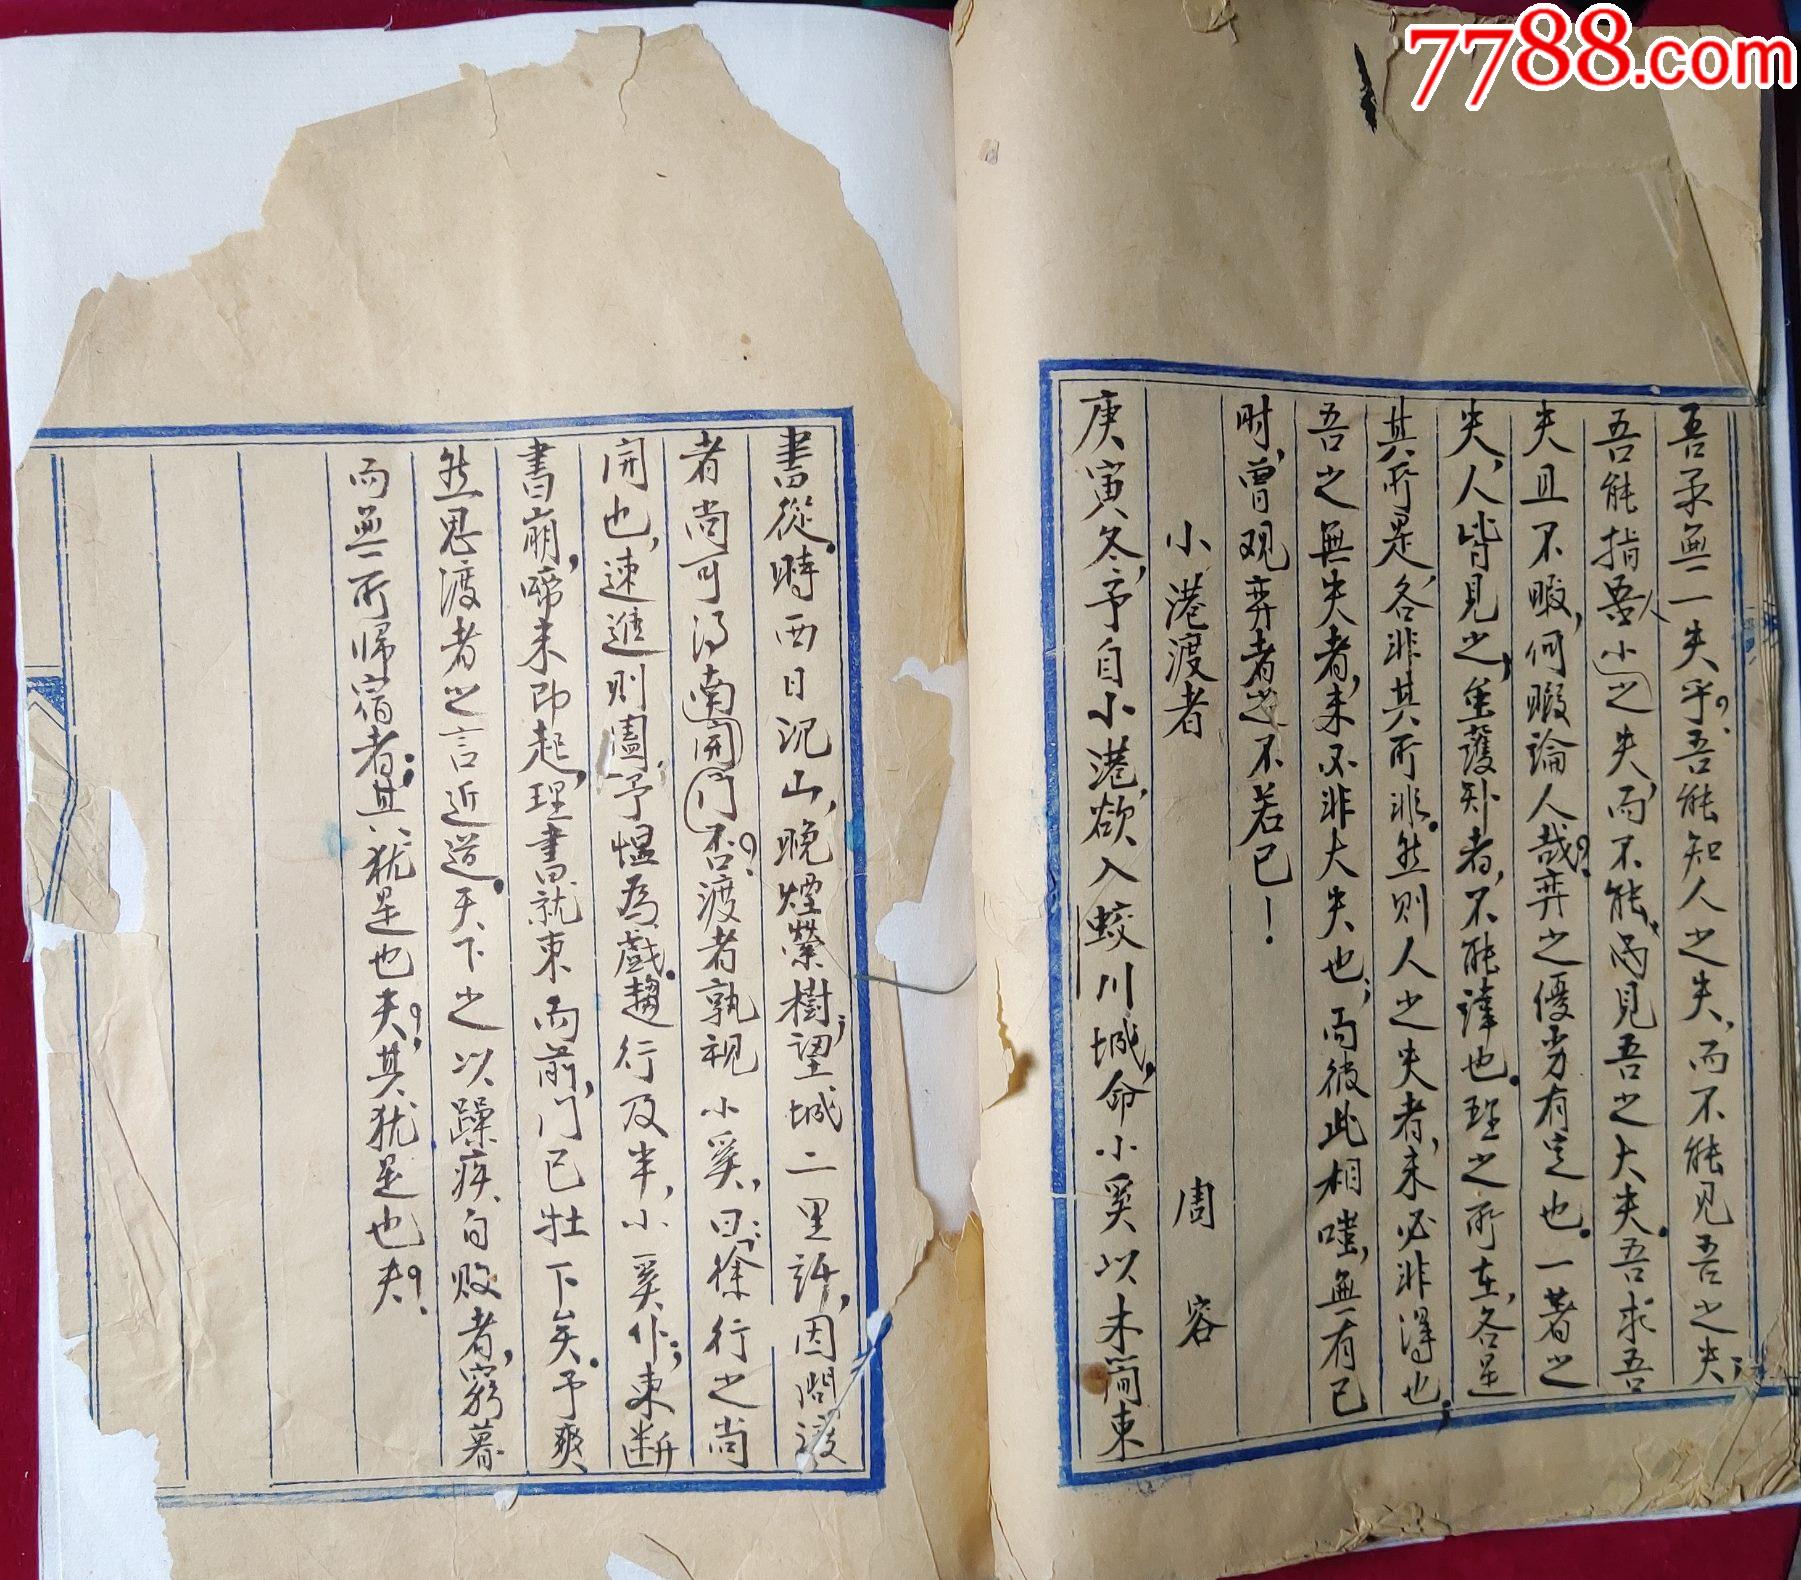 7788.com
吾果無一失乎?吾能知人之失,而不能見吾之失;
吾能指吾人小之失,而不能而見吾之大失.吾求吾
失且不暇,何暇論人哉?弈之優劣有定也.一著之
失,人皆見之,雖護短者,不能諱也.理之所在,各是
其所是,各非其所非.然則人之失者,未必非得也;
吾之無失者,未必非大失也;而彼此相嗤,無有已
时,曾观弈者之不若已!
小港渡者 周容
庚寅冬,予自小港,欲入蛟川城,命小奚以木簡束
書從.時西日沉山,晚煙縈樹,望城二里許,因問渡
者尚可得南開門否?渡者孰視小奚,曰:徐行之尚
開也,速進則闔.予愠為戲.趨行及半,小奚仆;束断
書崩,啼未即起,理書就束而前,門已牡下矣.予爽
然思渡者之言近道.天下之以躁疾自败者,窮暮
而無所帰宿者,其猶是也夫?其犹是也夫?